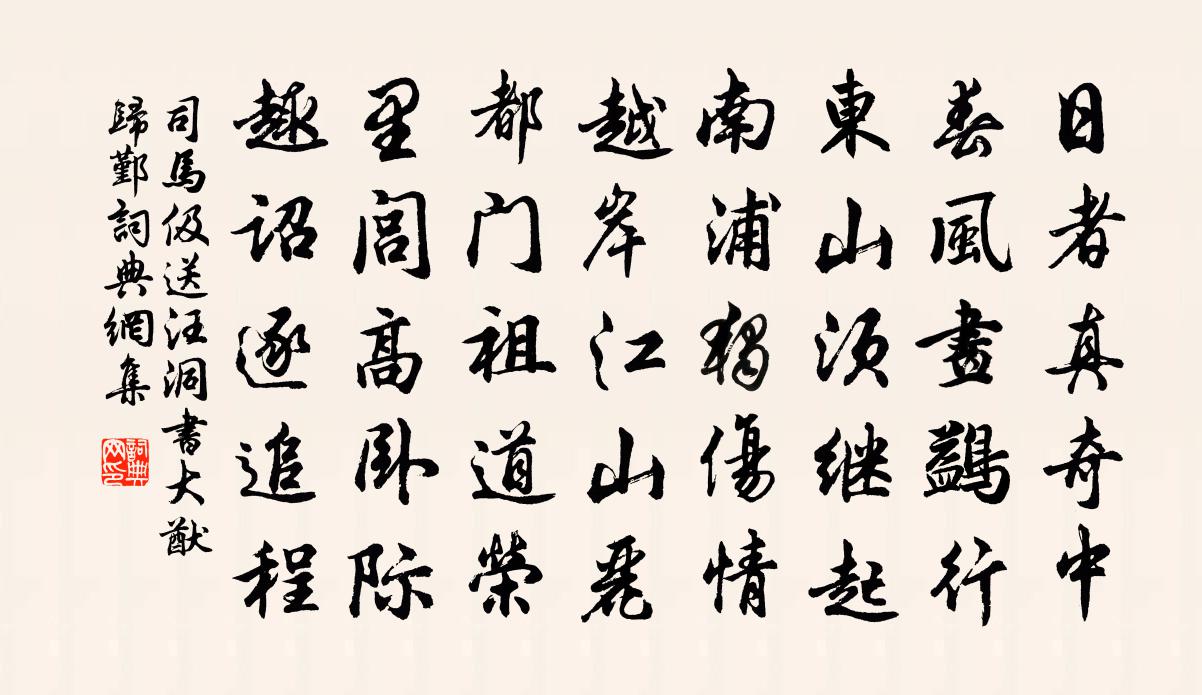 日者真奇中
春風畫鷁行
東山須继起
南浦獨傷情
越岸江山麗
都门祖道榮
里閭高卧际
趣诏逐追程
司馬伋送汪洞書大猷
歸鄞詞典網集
詞典